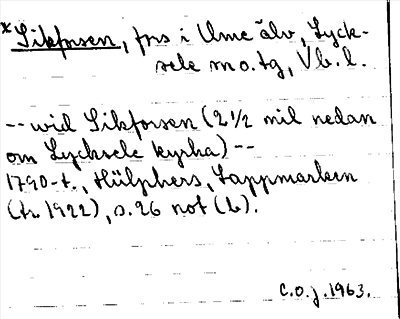 *Sikforsen, fors i Ume älv, Lyck-
sele mo.tg, Vb.l.
-- wid Sikforsen (2 1/2 mil nedan
om Lycksele kyrka) --
1790-t., Hülphers, Lappmarken
(tr. 1922), s. 26 not (b).
C.O.J. 1963.